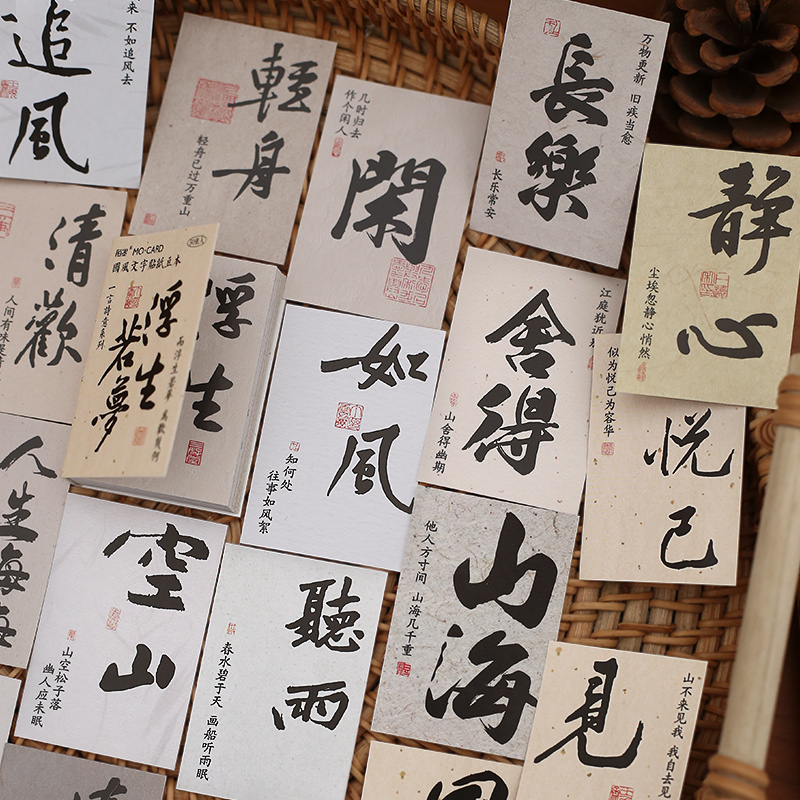 追風
来 不如追风去
輕舟
轻舟已过万重山
閑
几时归去
作个闲人
長樂
万物更新 旧疾当愈
长乐常安
靜心
尘埃忽静心悄然
清歡
人间有味是
MO·CARD
國風文字貼紙豆本
一言詩意系列
浮生
若夢
而浮生若夢 為歡幾何
浮生
如風
知何处
往事如风絮
舍得
山舍得幽期
江庭犹近
悦己
似为悦己为容华
人生海海
空山
山空松子落
幽人应未眠
聽雨
春水碧于天 画船听雨眠
山海
他人方寸间 山海几千重
見
山不来见我 我自去见